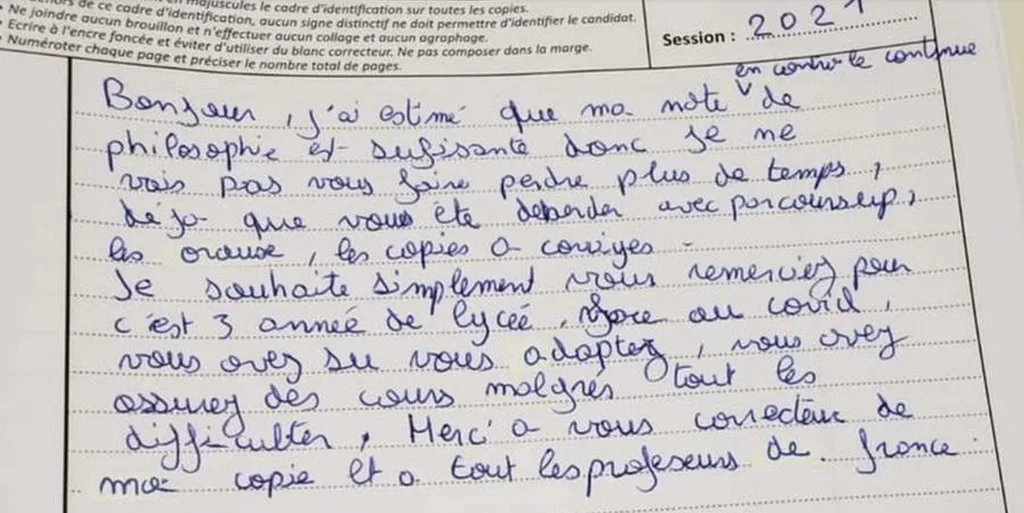 majuscules le cadre d'identification sur toutes les copies.
de ce cadre d'identification, aucun signe distinctif ne doit permettre d'identifier le candidat.
• Ne joindre aucun brouillon et n'effectuer aucun collage et aucun agraphage.
• Ecrire à l'encre foncée et éviter d'utiliser du blanc correcteur. Ne pas composer dans la marge.
• Numéroter chaque page et préciser le nombre total de pages.
Session : 2021
en controle continue
Bonjour, j'ai estimé que ma note v de
philosophie est sufisante donc je ne
vais pas vous faire perdre plus de temps,
déja que vous été deborder avec parcoursup,
les oraux, les copies a corriges -
Je souhaite simplement vous remerciez pour
c'est 3 année de lycée, face au covid,
vous avez su vous adaptez, vous avez
assurez des cours malgrés tout les
difficulter, Merci a vous correcteur de
ma copie et a tout les profeseurs de france.